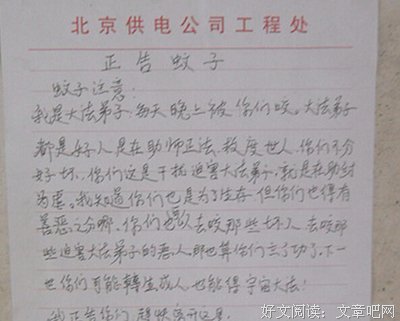 北京供电公司工程处
正告蚊子
蚊子注意：
我是大法弟子，每天晚上被你们咬。大法弟子
都是好人是在助师正法，救度世人，你们不分
好坏，你们这是干扰迫害大法弟子，就是在助纣
为虐，我知道你们也是为了生存，但你们也得有
善恶之分哪，你们要以去咬那些坏人，去咬那
些迫害大法弟子的恶人，那也算你们立了功了，下一
也你们可能转生成人，也能得宇宙大法！
我正告你们，赶快离开这里
好文阅读：文章吧网